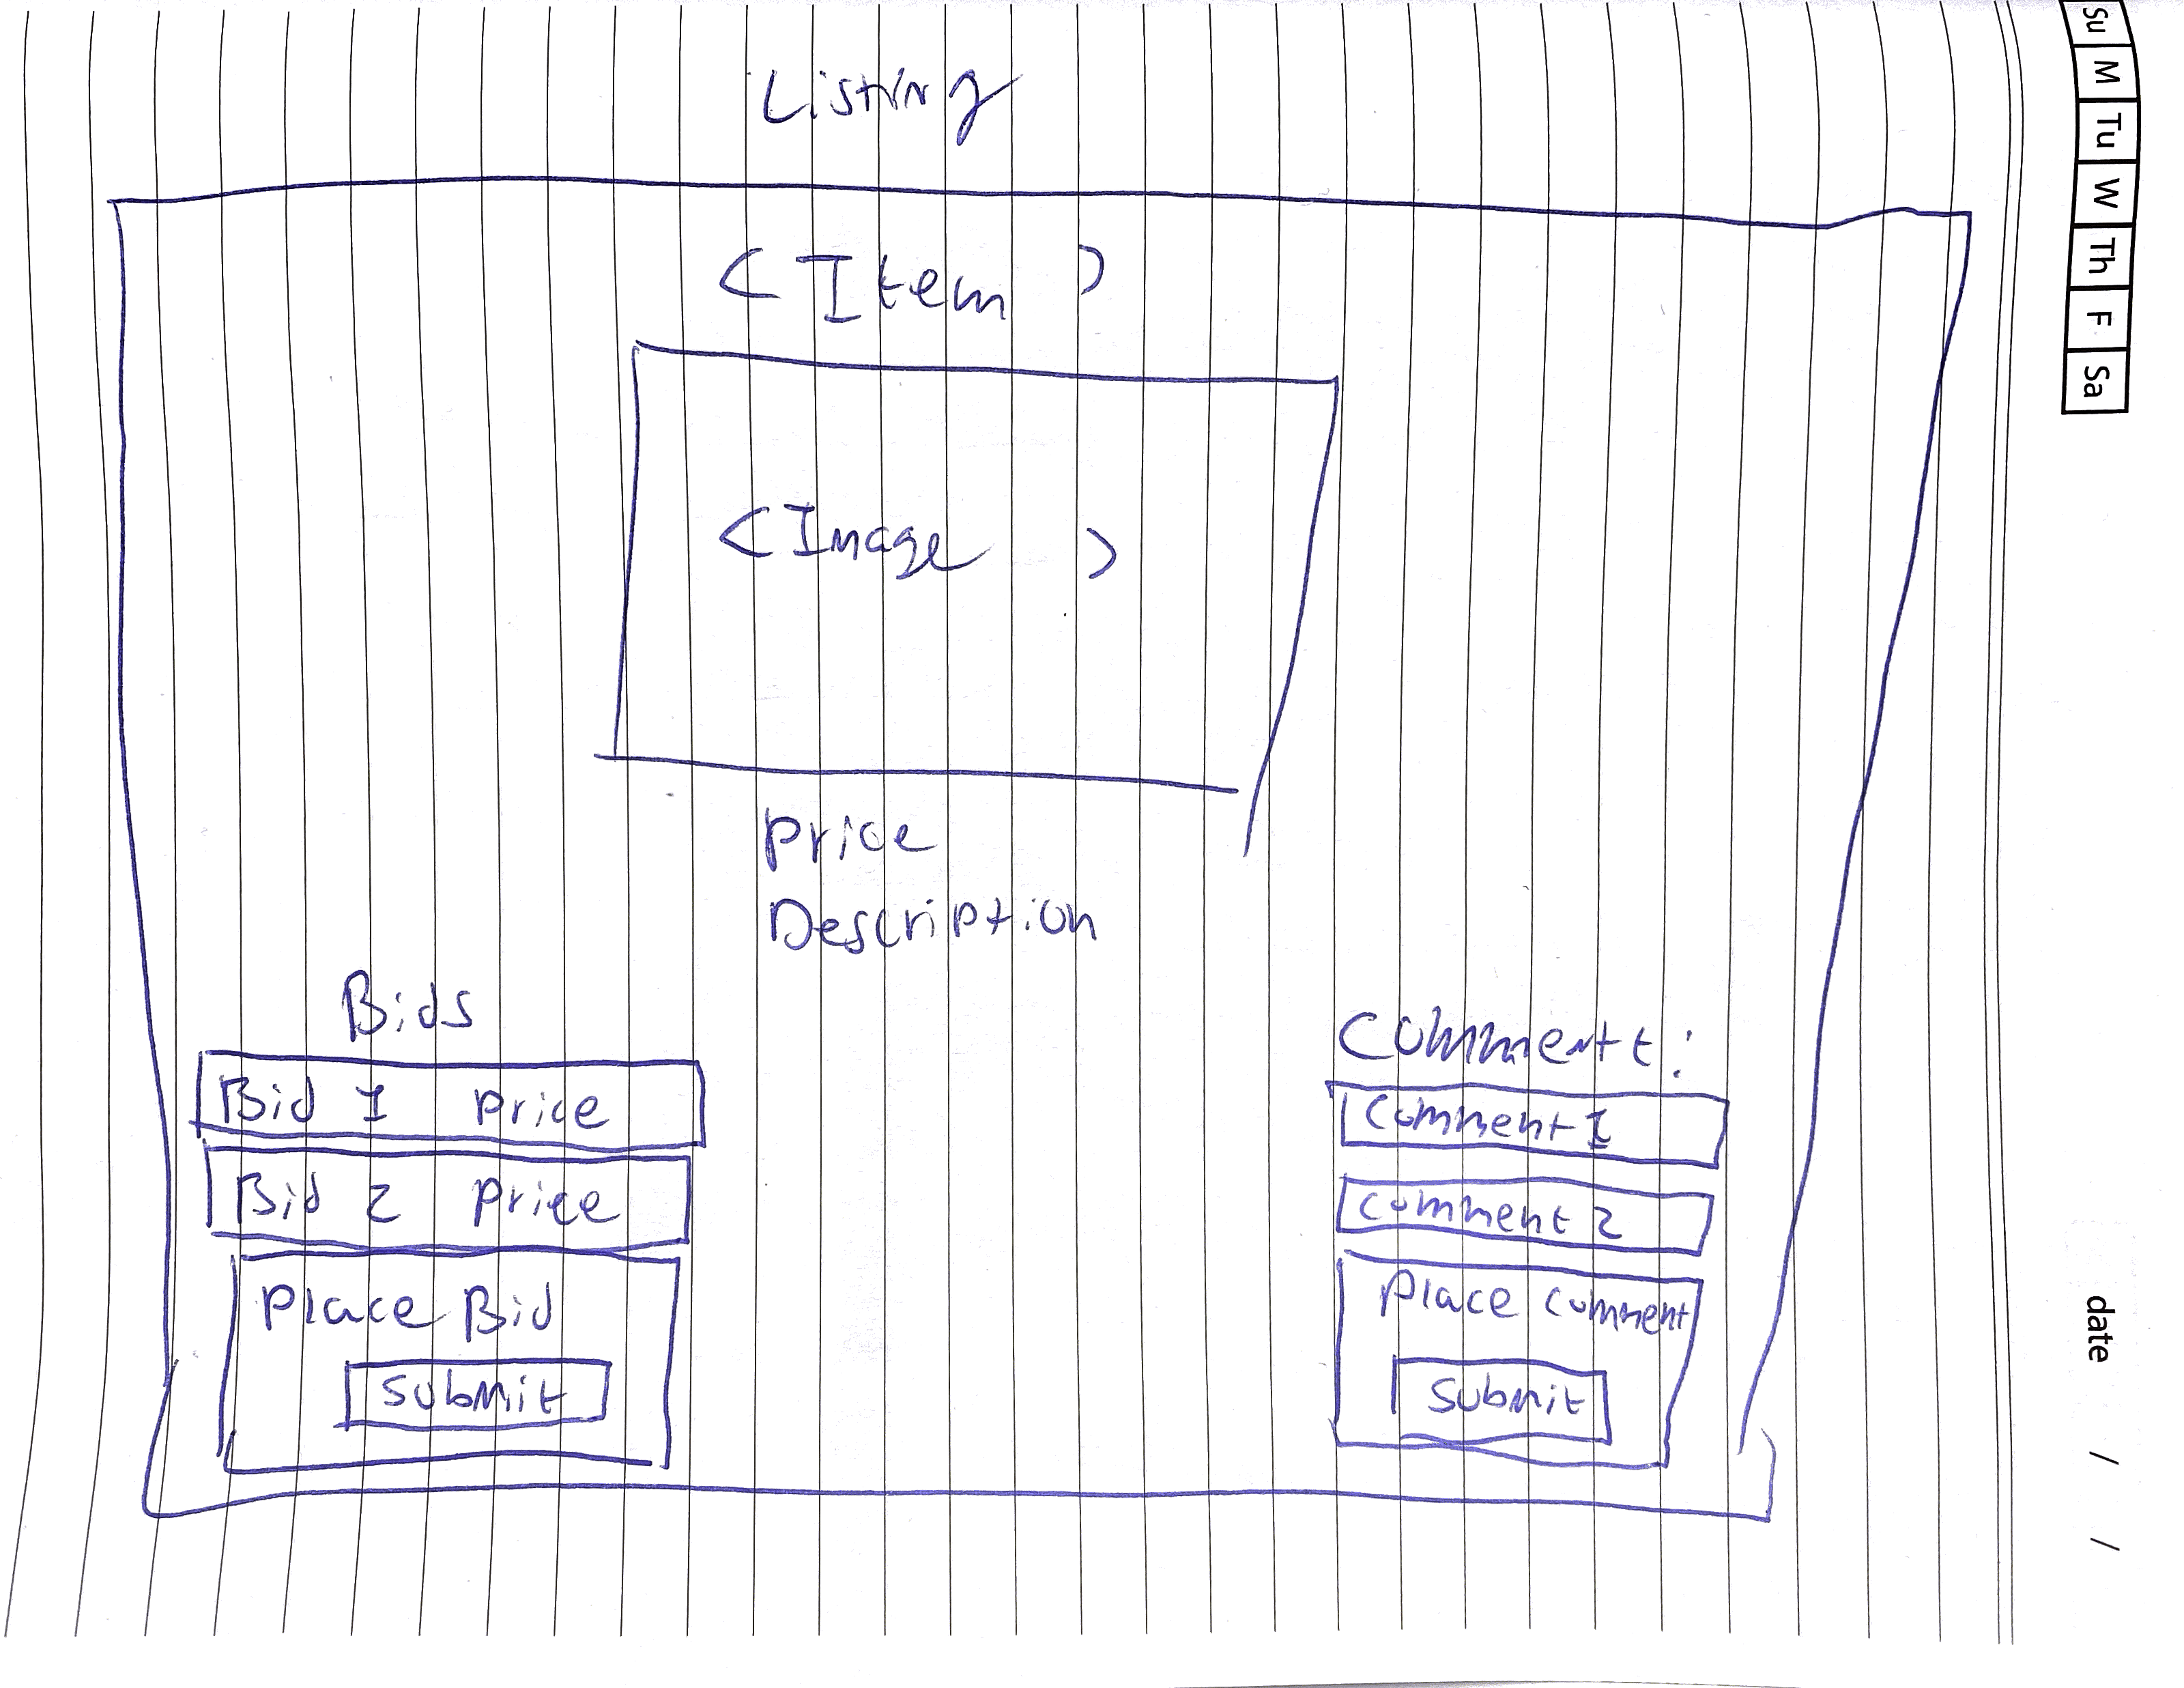 Listing
< Item >
< Image >
Price
Description
Bids
Bid 1 Price
Bid 2 Price
Place Bid
Submit
Commentt:
Comment 1
Comment 2
Place comment
Submit
Su M Tu W Th F Sa
date / /